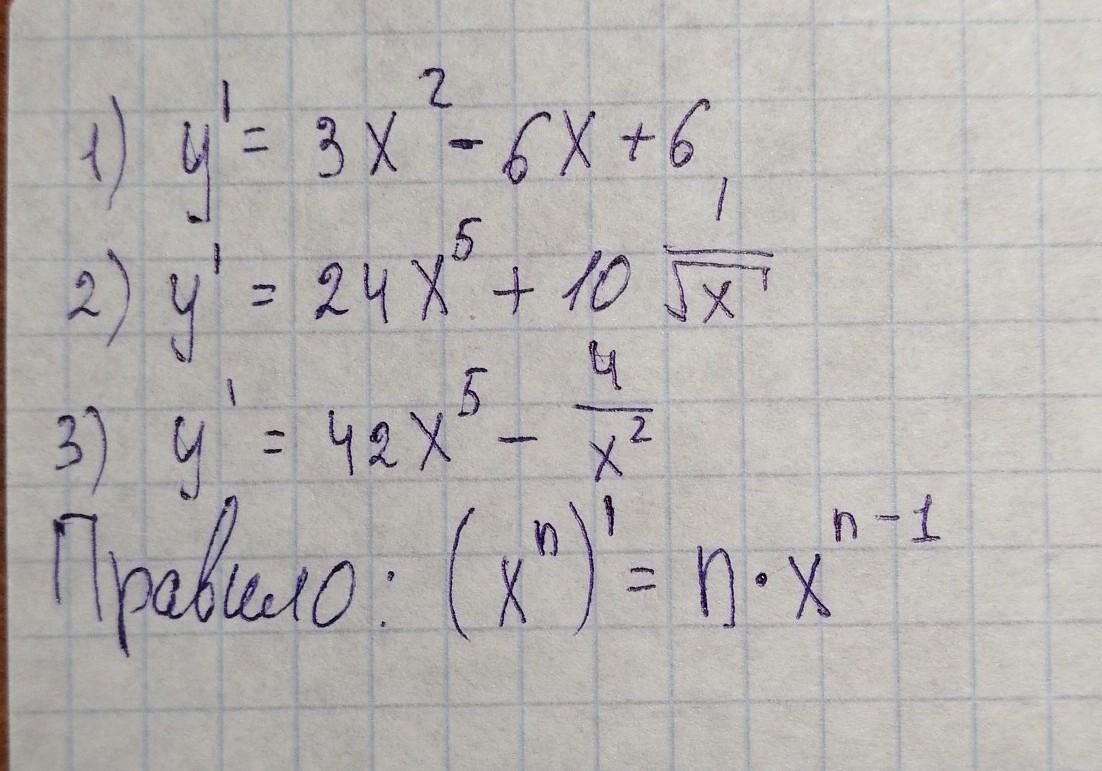 1) y' = 3x² - 6x + 6
2) y' = 24x⁵ + 10 1/√x
3) y' = 42x⁵ - 4/x²
Правило: (xⁿ)' = n·xⁿ⁻¹